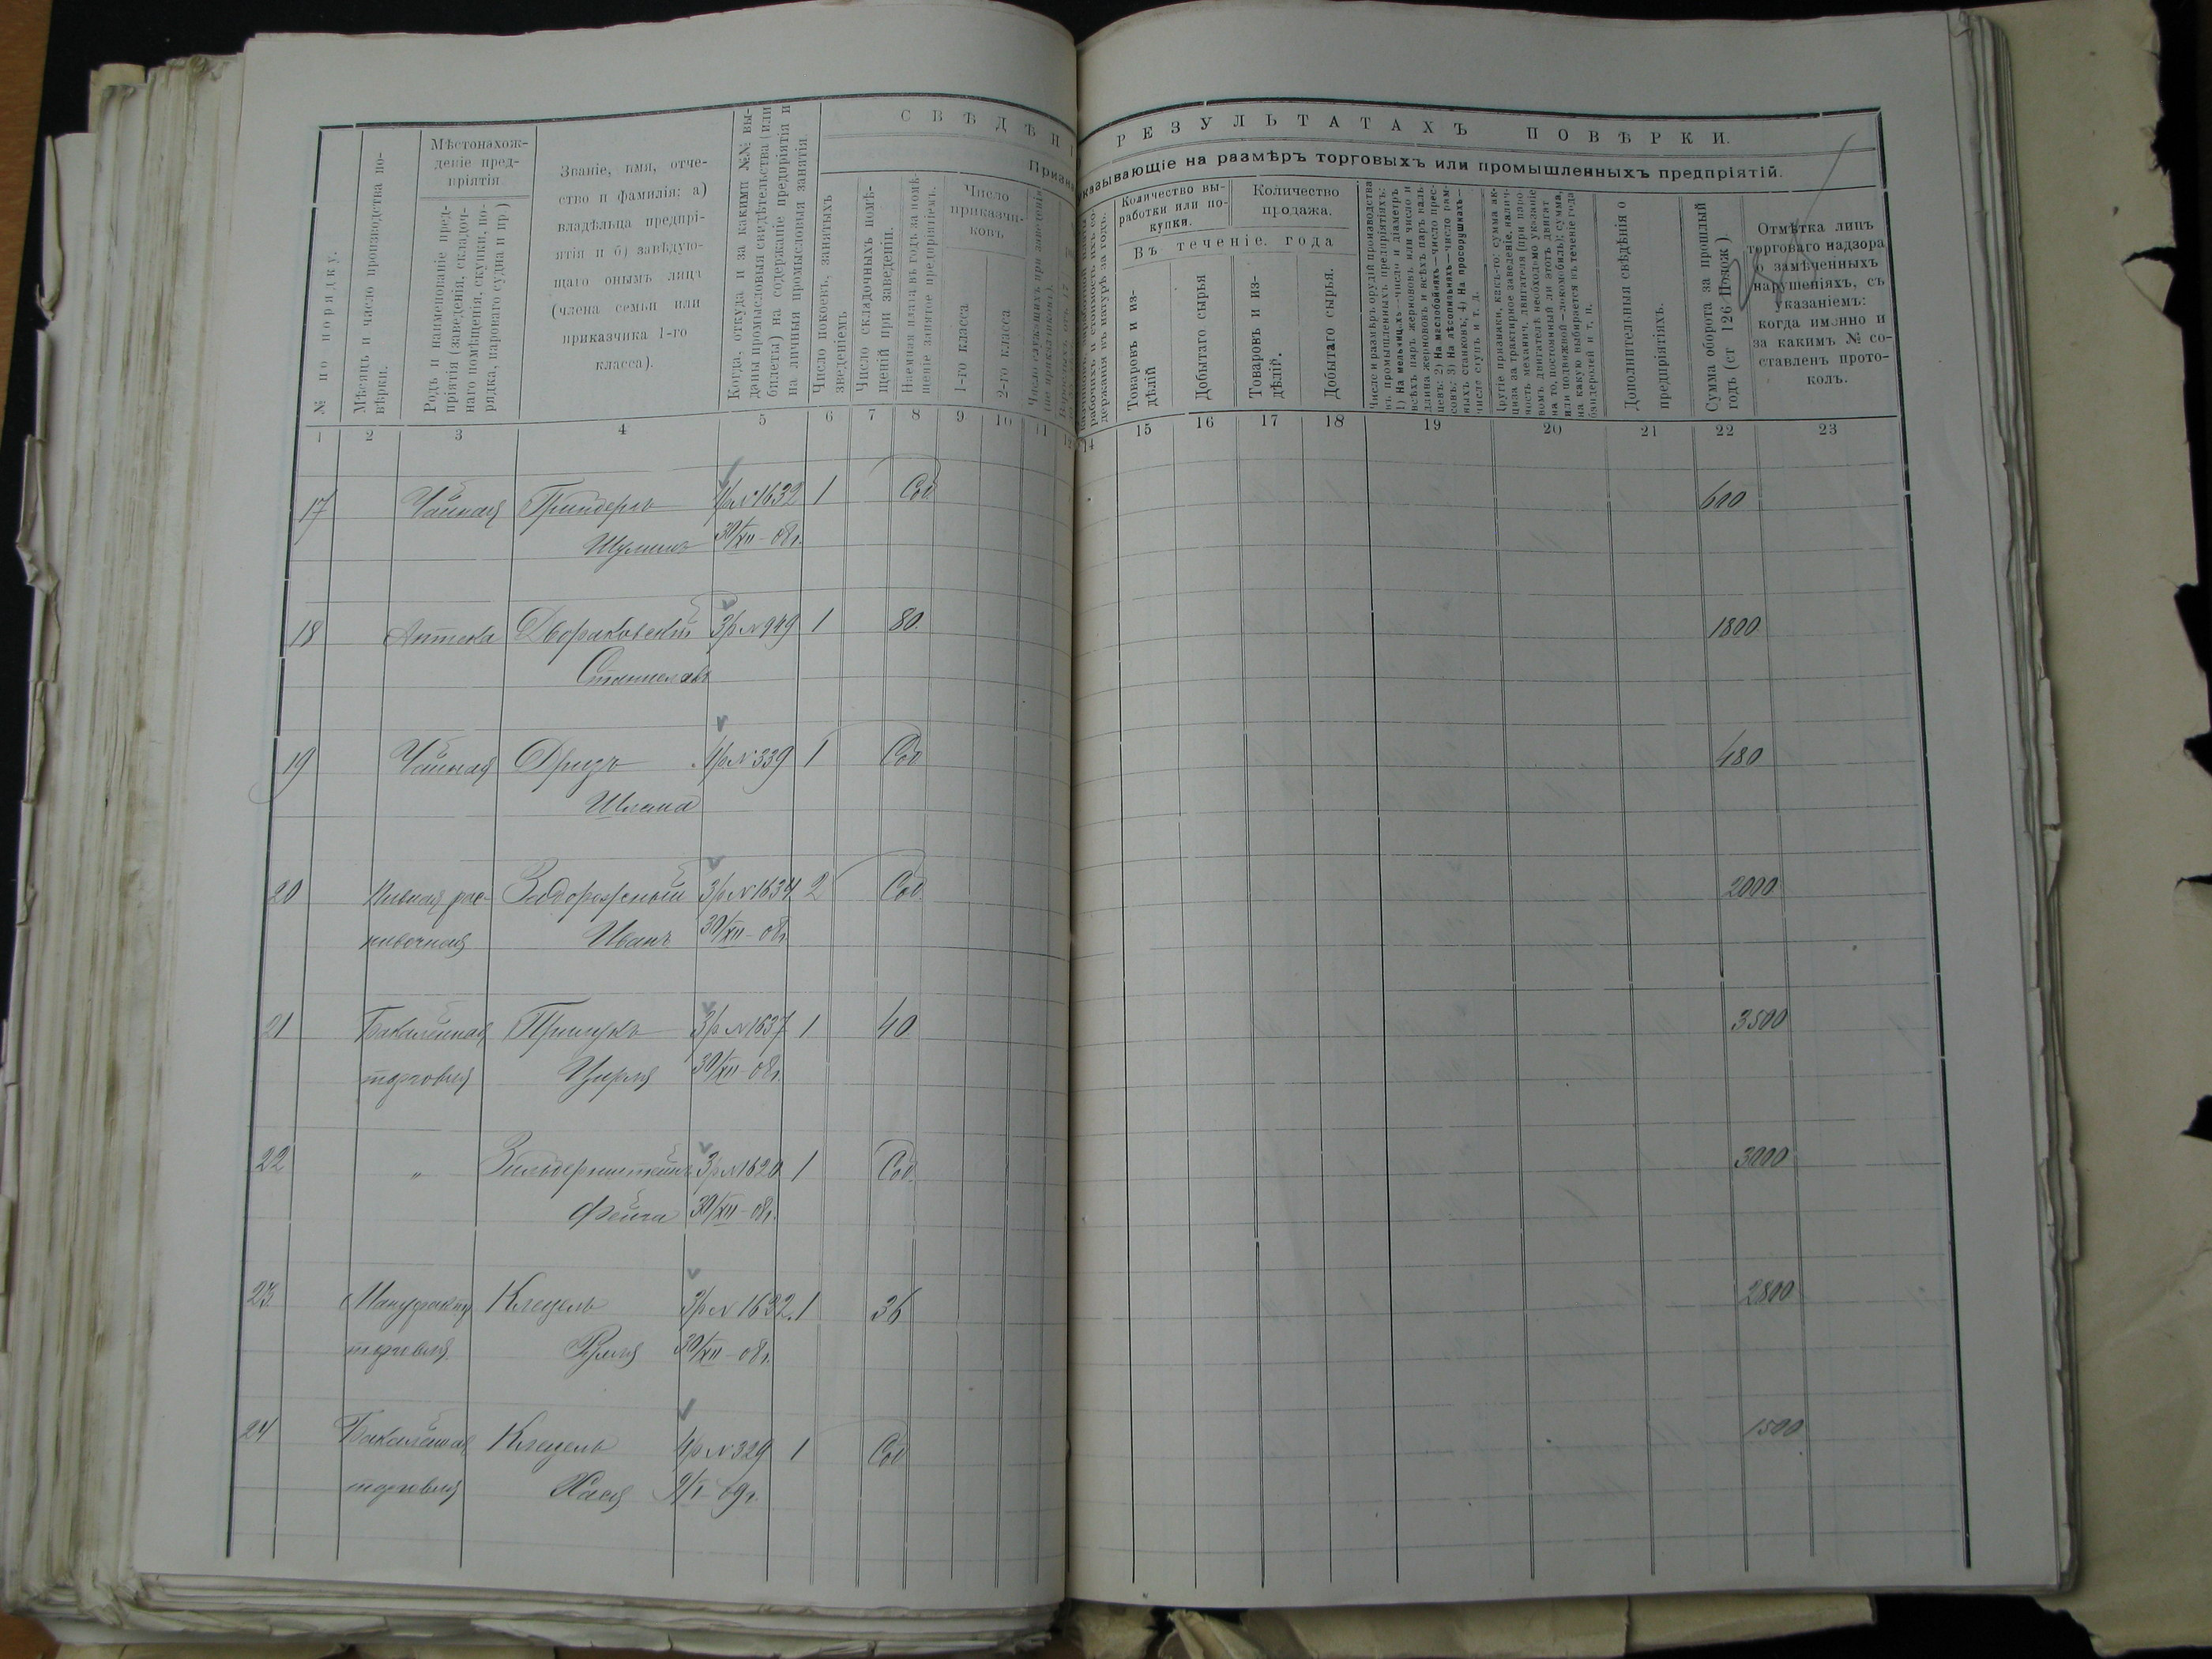 СВѢДѢНІ
РЕЗУЛЬТАТАХЪ ПОВѢРКИ.
Призна
казывающіе на размѣръ торговыхъ или промышленныхъ предпріятій.
№ по порядку.
Мѣсяцъ и число производства по-
вѣрки.
Мѣстонахож-
деніе пред-
пріятія
Родъ и наименованіе пред-
пріятія (заведенія, складоч-
наго помѣщенія, скупки, по-
ряда, парового судна и пр.)
Званіе, имя, отче-
ство и фамилія: а)
владѣльца предпрі-
ятія и б) завѣдую-
щаго онымъ лица
(члена семьи или
приказчика 1-го
класса).
Когда, откуда и за какими №№ вы-
даны промысловыя свидѣтельства (или
билеты) на содержаніе предпріятія и
на личныя промысловыя занятія.
Число покоевъ, занятыхъ
зведеніемъ.
Число складочныхъ помѣ-
щеній при заведеніи.
Наемная плата въ годъ за помѣ-
щеніе занятое предпріятіемъ.
Число
приказчи-
ковъ.
1-го класса
2-го класса
Количество вы-
работки или по-
купки.
Количество
продажа.
Въ теченіе года
Товаровъ и из-
дѣлій
Добытаго сырья
Товаровъ и из-
дѣлій.
Добытаго сырья.
Число и размѣръ орудій производства
въ промышленныхъ предпріятіяхъ:
1) На мельницахъ—число и діаметръ
всѣхъ паръ жернововъ или число и
длина жерновокъ и всѣхъ паръ валь-
цевъ; 2) На маслобойняхъ—число прес-
совъ; 3) На лѣсопильняхъ—число рам-
ныхъ станковъ; 4) На просорушкахъ—
число ступъ и т. д.
Другіе признаки, какъ-то: сумма ак-
циза за трактирное заведеніе, налич-
ность механич. двигателя (при паро-
вомъ двигателѣ необходимо указаніе
на то, постоянный ли этотъ двигат
или подвижной—локомобиль); сумма,
на какую выбирается въ теченіе года
бандеролей и т. п.
Дополнительныя свѣдѣнія о
предпріятіяхъ.
Сумма оборота за прошлый
годъ (ст 126 Полож ).
Отмѣтка лицъ
торговаго надзора
о замѣченныхъ
нарушеніяхъ, съ
указаніемъ:
когда именно и
за какимъ № со-
ставленъ прото-
колъ.
1 2 3 4 5 6 7 8 9 10 11 12 14 15 16 17 18 19 20 21 22 23
17 Чайная Гриндеръ 4/р №1632 1 Соб 600
Шулимъ 30/XII-08г.
18 Аптека Двораковскій 3/р №949 1 80. 1800
Станиславъ
19 Чайная Дризъ 4/р №339 1 Соб 480
Шлема
20 Пивная рас- Заддорожный 3/р №1634 2 Соб. 2000
пивочная Иванъ 30/XII-08г.
21 Бакалейная Прицкъ 3/р №1637 1 40 3500
торговля Цирля 30/XII-08г.
22 „ Зильдерштейнъ 3/р №1620 1 Соб. 3000
Фейга 30/XII-08г.
23 Мануфакту Клецель 3/р №1632. 1 36 2800
торговля. Рухля 30/XII-08г.
24 Бакалейная Клецель 4/р №329 1 Соб 1500
торговля Хася 9/I-09г.